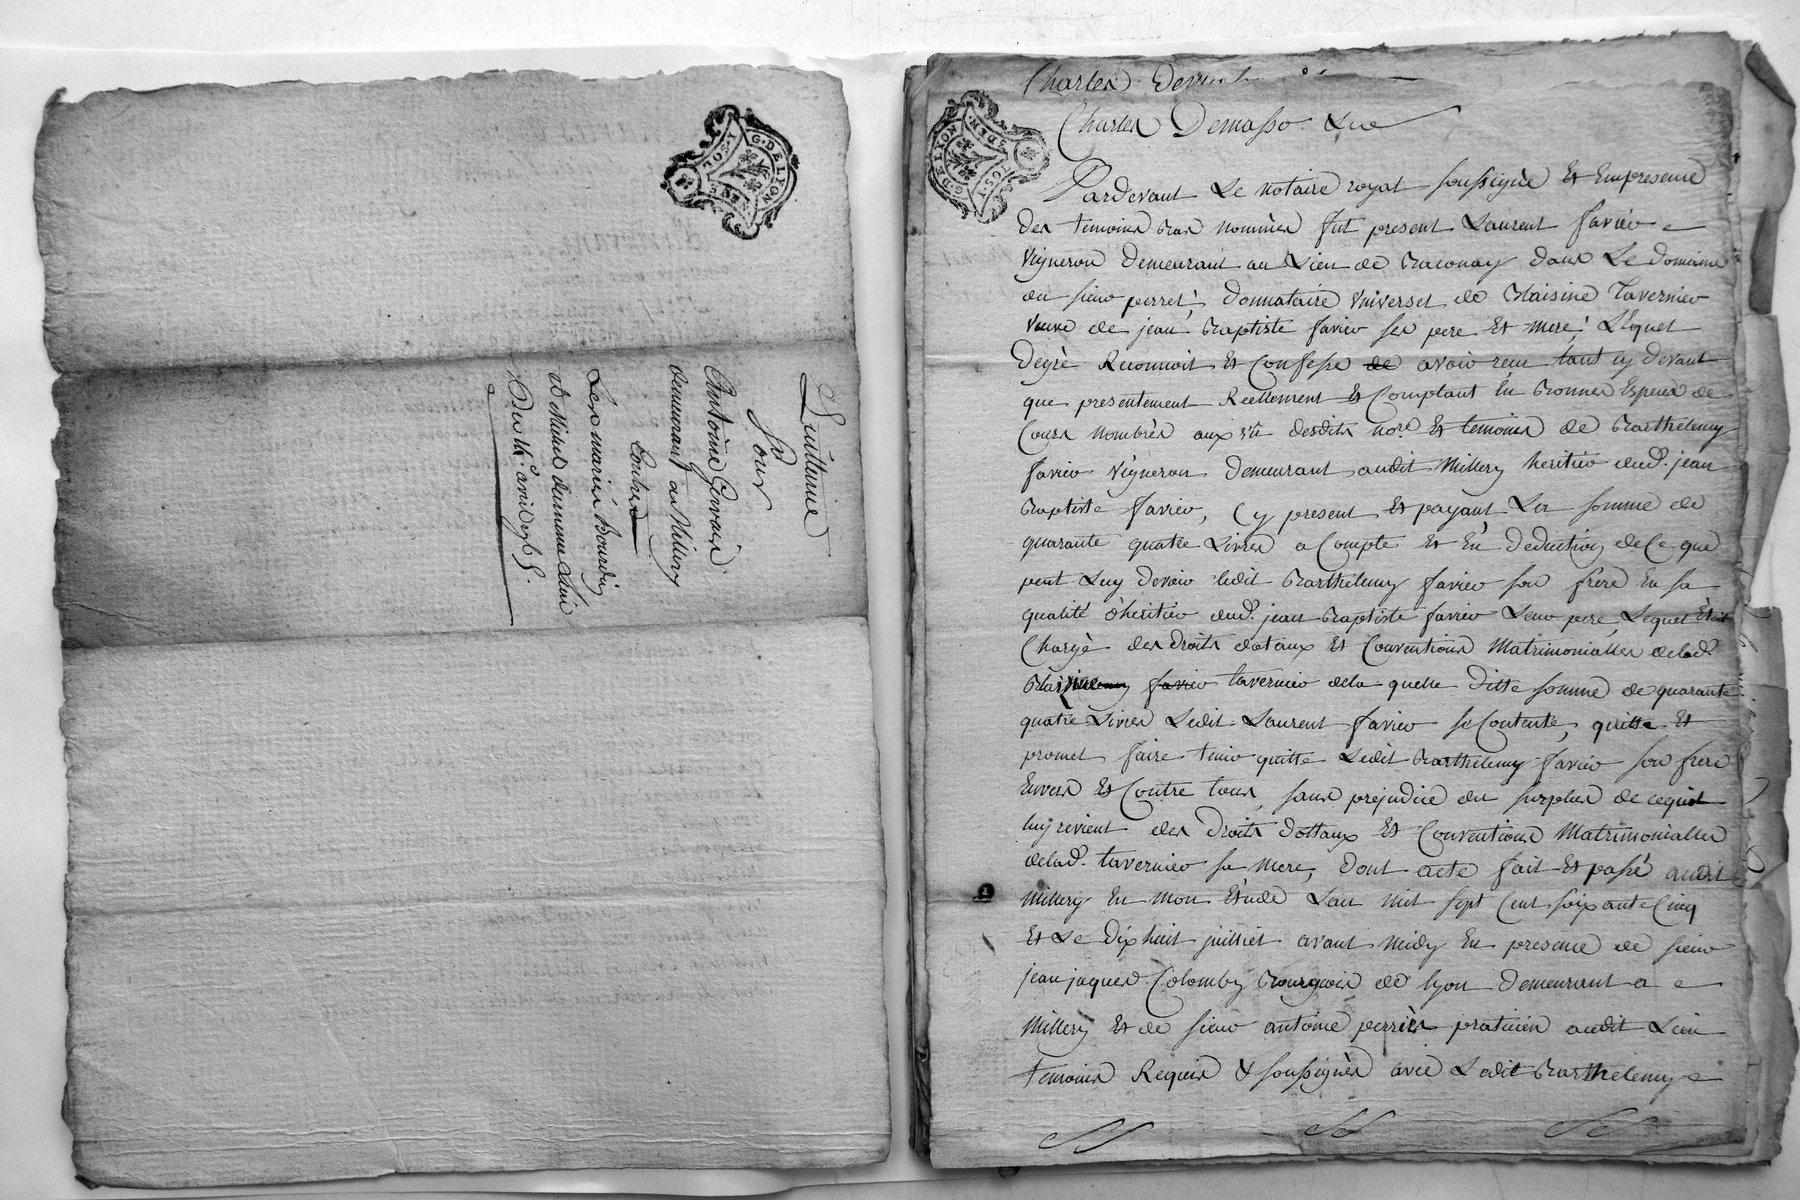 G. DE LYON
1. SOL.
GENE
Quittance
Pour
Antoine Gervais
demeurant a Millery
Contre
Les mariés Bourdin
et Michel du meme Lieu
Du 4e. avril 1765.
G. DE LYON
Charles
Charles Demasso
Pardevant Le notaire royal soussigné Et Enpresence
des temoins Bas nommés fut present Laurent favier
Vigneron demeurant au Lieu de dans Le domaine
du sieur perret, donnataire Universel de Blaisine Tavernier
veuve de jean Baptiste favier ses pere Et mere; LEquel
degré Reconnoit Et Confesse de avoir recu tant cy devant
que presentement Reellement Et Comptant En Bonnes Especes de
Cours Nombrés aux vû desdits nore. Et temoins de Barthelemy
favier Vigneron demeurant audit Millery heritier dud. jean
Baptiste favier, Cy present Et payant La somme de
quarante quatre Livres a Compte Et En deduction de Ce que
peut Luy devoir ledit Barthelemy favier son frere En sa
qualité d'heritier dud. jean Baptiste favier Leur pere, Lequel Etoit
Chargé des droits dotaux Et Conventions Matrimonialles delad.
favier tavernier dela quelle ditte somme de quarante
quatre Livres Ledit Laurent favier se Contente, quitte Et
promet faire tenir quitte Ledit Barthelemy favier son frere
Envers Et Contre tous, sans prejudice du surplus de cequi
luy revient des droits dottaux Et Conventions Matrimonialles
delad. tavernier sa mere, dont acte fait Et passé audit
Millery En mon Etude L'an mil sept Cent soixante Cinq
Et Le dix huit juilliet avant midy En presence de sieur
jean jaques Colomby Bourgeois de lyon demeurant a
Millery Et de sieur antoine perrier praticien audit Lieu
temoins Requis & soussignés avec Ledit Barthelemy